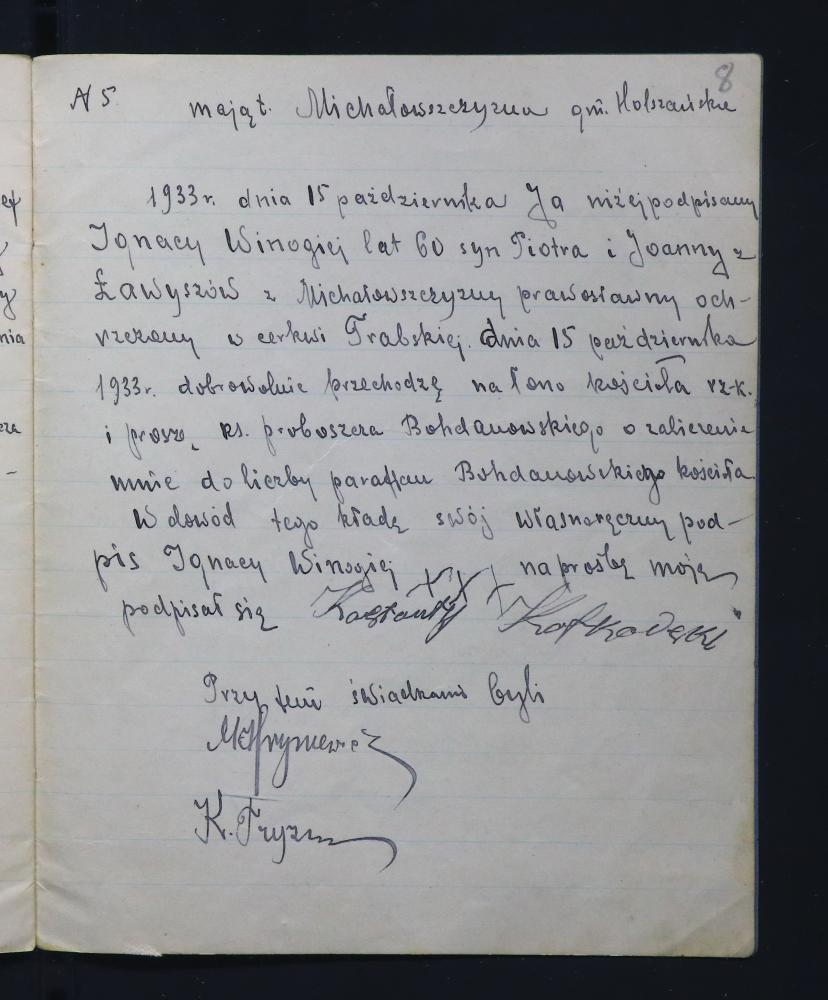 8
N 5 mająt. Michałowszczyzna gm. Holszańska
1933 r. dnia 15 października Ja niżej podpisany
Ignacy Winogiej lat 60 syn Piotra i Joanny z
Ławyszów z Michałowszczyzny prawosławny och-
rzczony w cerkwi Trabskiej. dnia 15 października
1933 r. dobrowolnie przechodzę na łono kościoła rz-k.
i proszę ks. proboszcza Bohdanowskiego o zaliczenie
mnie do liczby parafjan Bohdanowskiego kościoła
W dowód tego kładę swój własnoręczny pod-
pis Ignacy Winogiej XXX na prośbę moję
podpisał się Konstanty
Przy tem świadkami byli
Hryniewicz
K.
nia